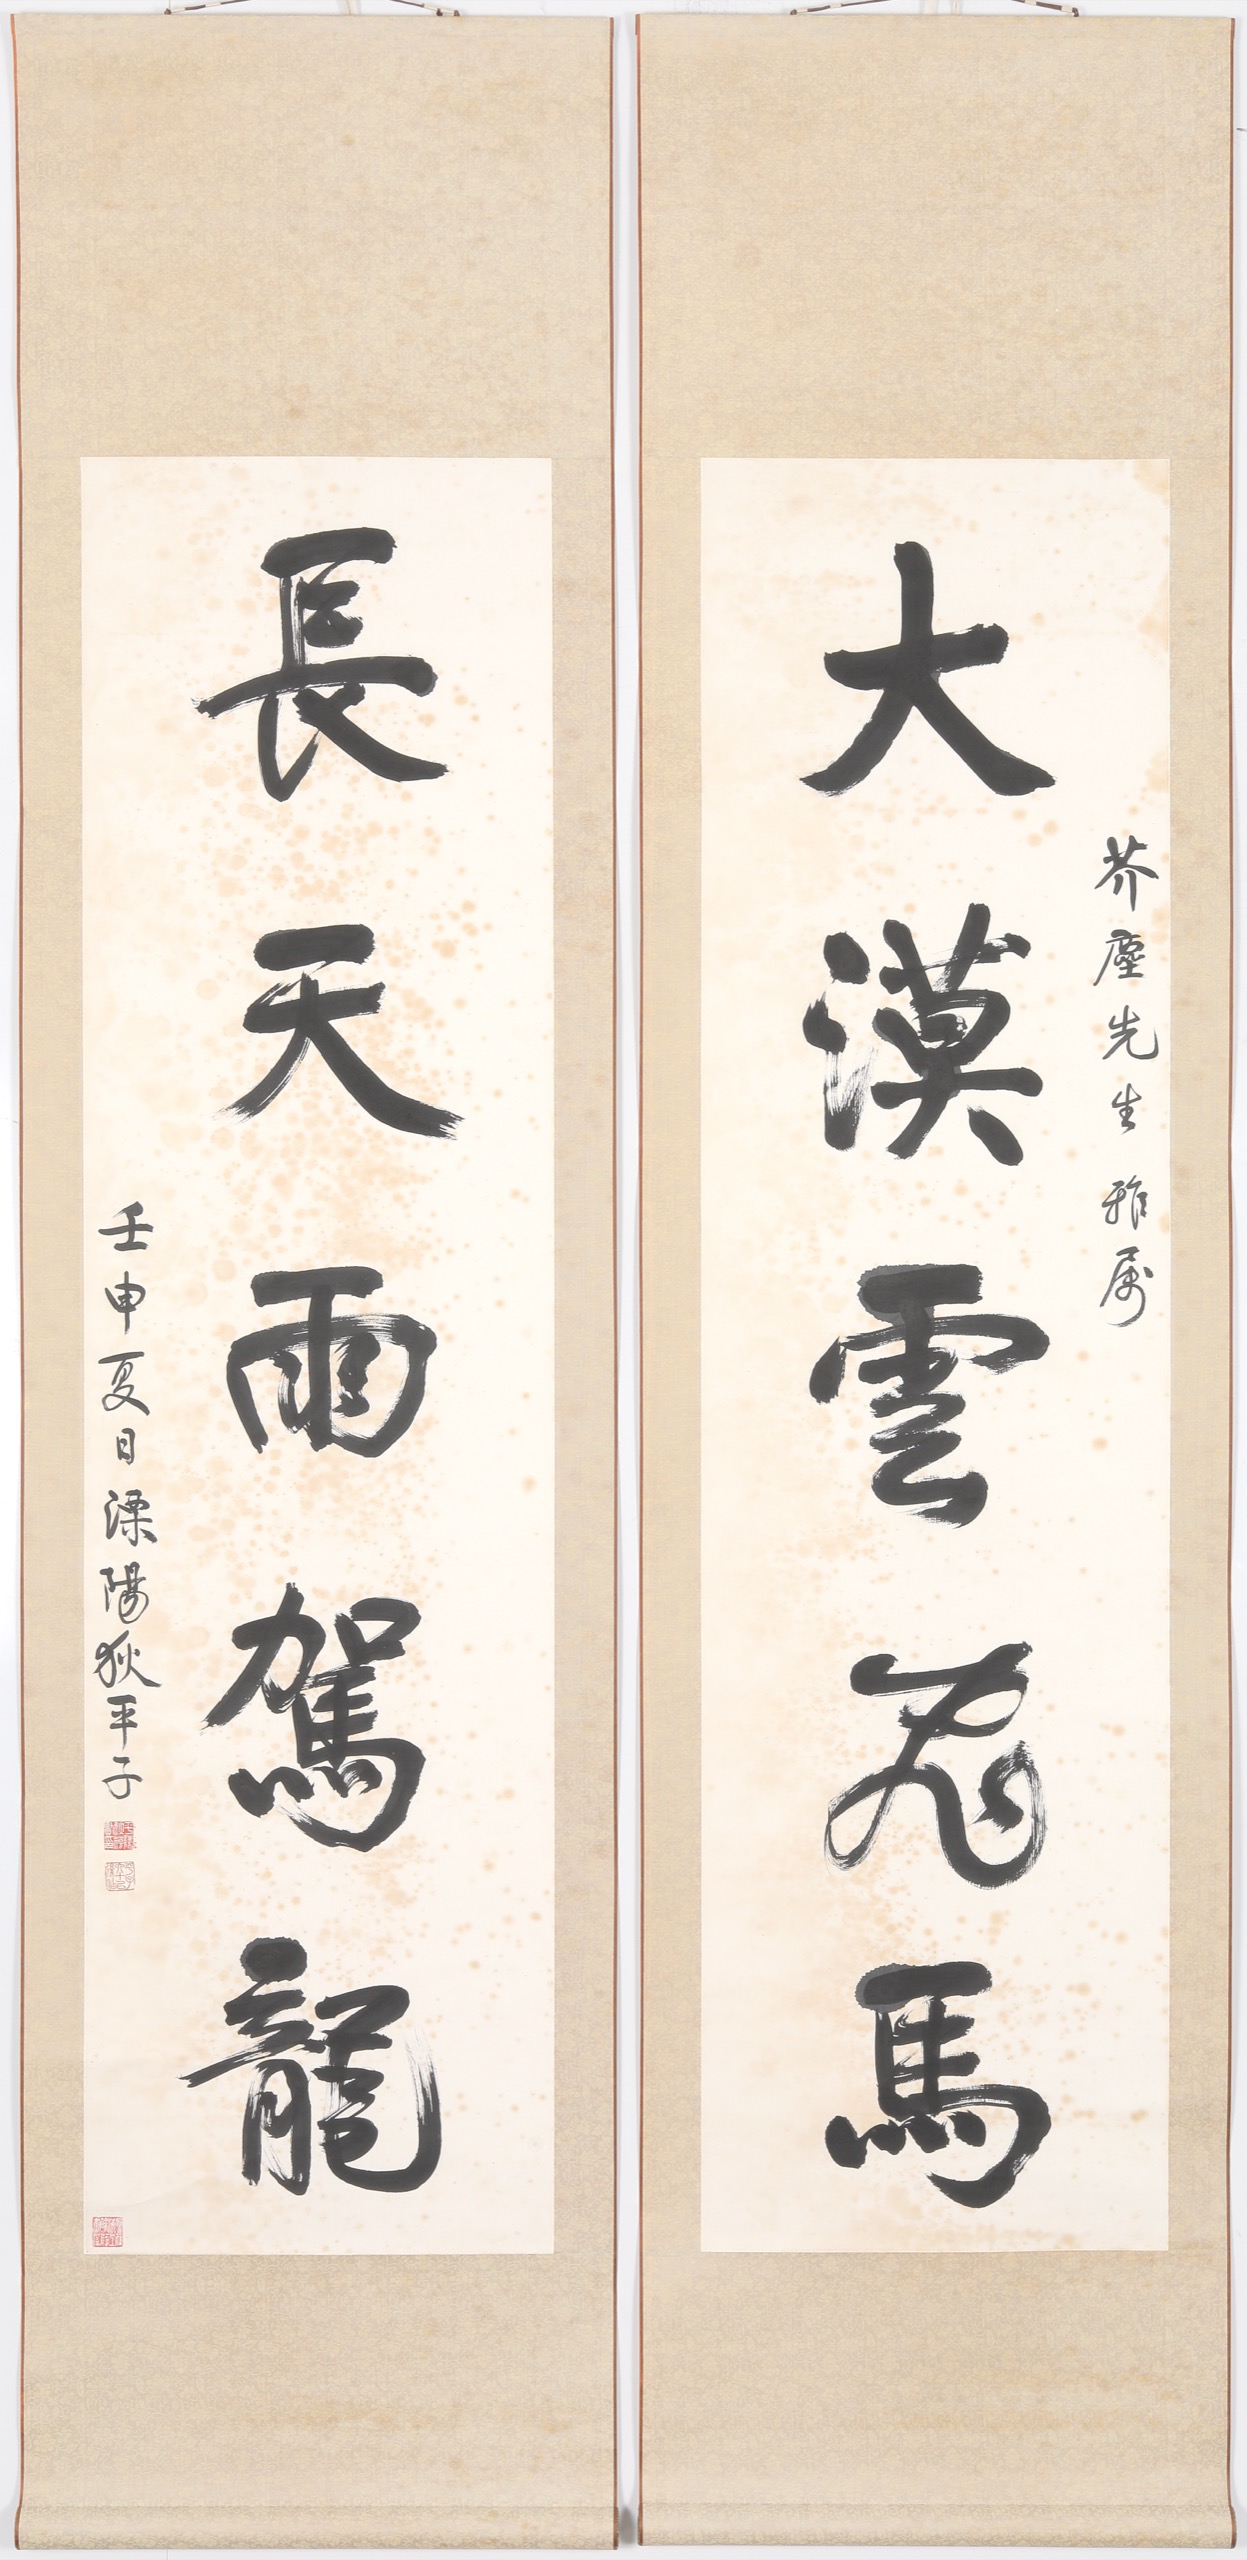 芥塵先生雅属
大漠雲飛馬
長天雨駕龍
壬申夏日溧陽狄平子